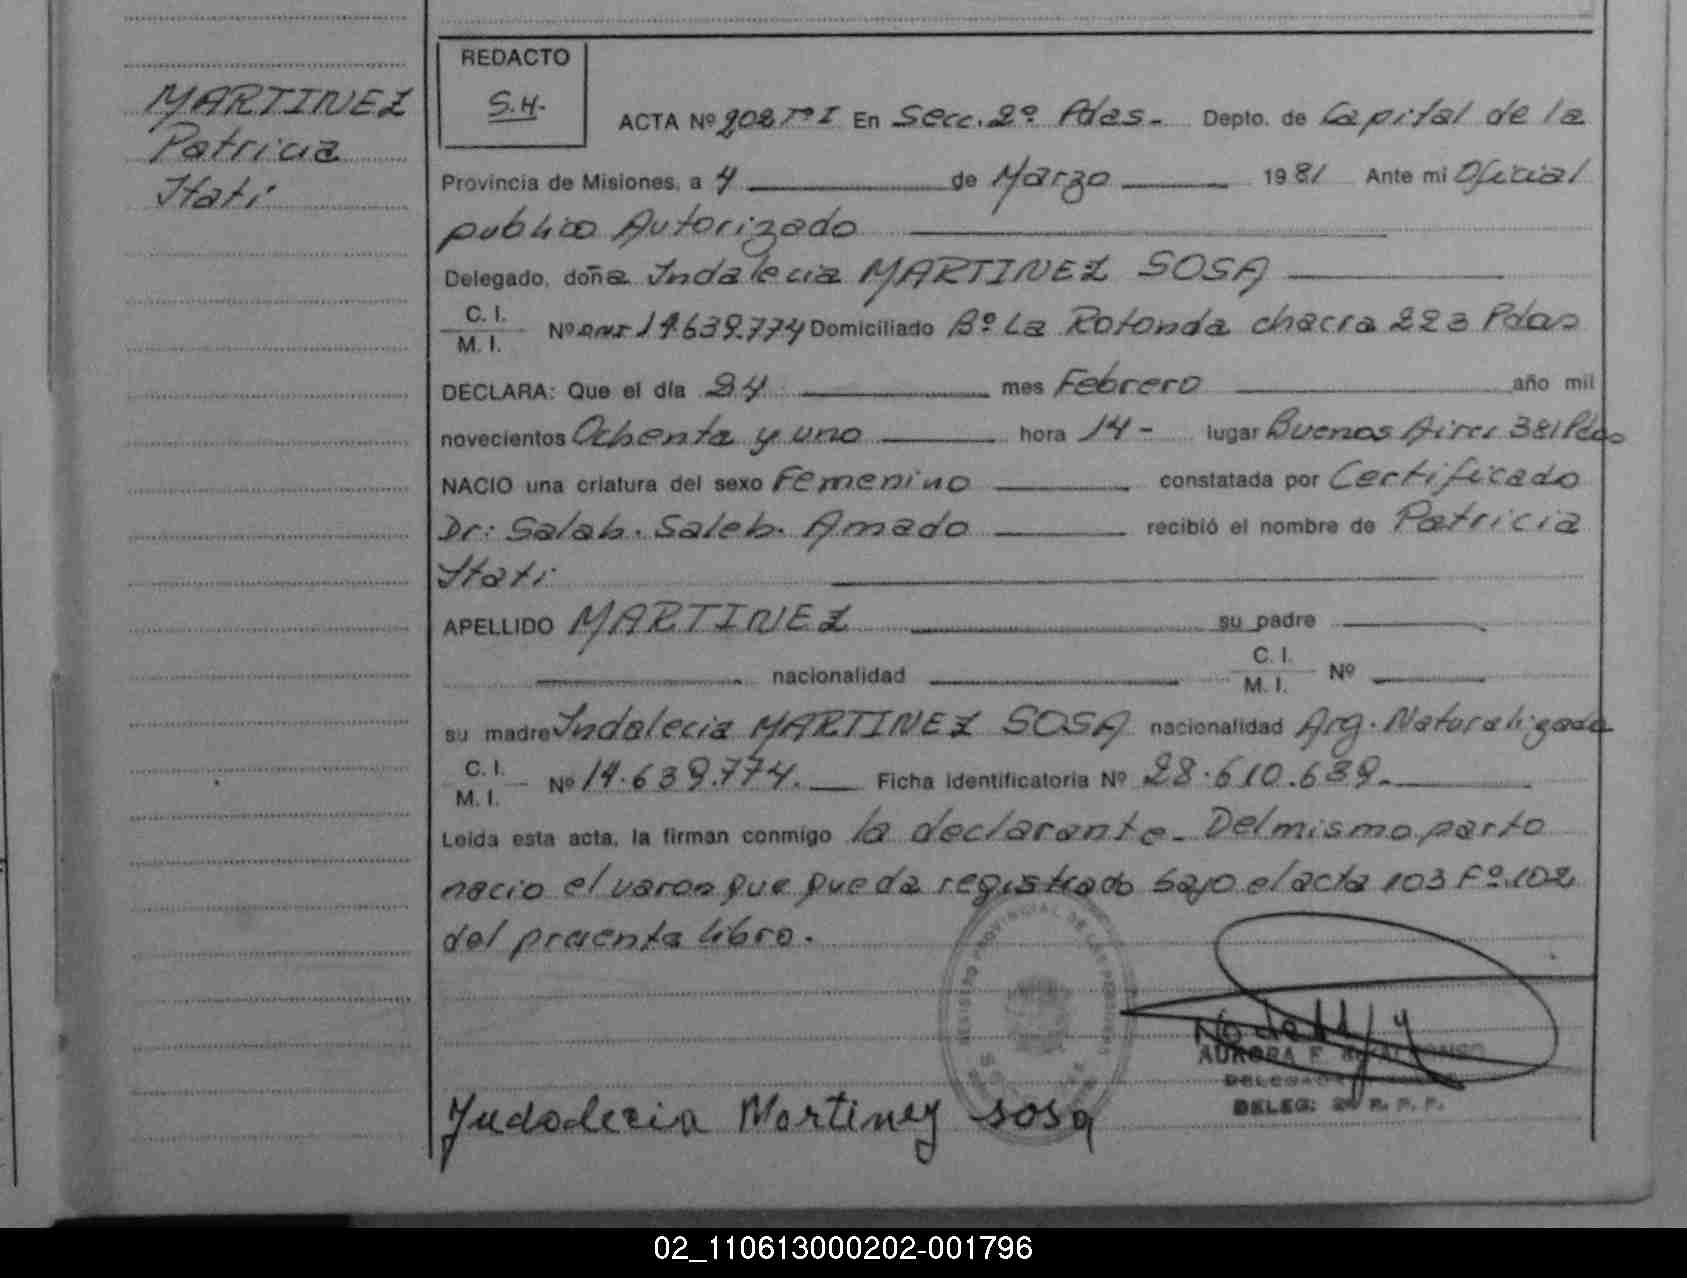 MARTINEZ
Patricia
Itatí
REDACTO
S.H.
ACTA Nº 202 Tº I En Secc. 2º Pdas. Depto. de Capital de la
Provincia de Misiones, a 4 de Marzo 1981 Ante mi Oficial
publico Autorizado
Delegado, doña Indalecia MARTINEZ SOSA
C. I.
M. I. Nº 14.639.774 Domiciliado Bº La Rotonda chacra 223 Pdas
DECLARA: Que el día 24 mes Febrero año mil
novecientos Ochenta y uno hora 14 - lugar Buenos Aires 381 Pdas
NACIO una criatura del sexo Femenino constatada por Certificado
Dr: Salab. Saleb. Amado recibió el nombre de Patricia
Itatí
APELLIDO MARTINEZ su padre
nacionalidad C. I.
M. I. Nº
su madre Indalecia MARTINEZ SOSA nacionalidad Arg. Naturalizada
C. I.
M. I. Nº 14.639.774. Ficha identificatoria Nº 28.610.639.
Leída esta acta, la firman conmigo la declarante. Del mismo parto
nacio el varon que queda registrado bajo el acta 103 Fº 102
del presente libro.
REGISTRO PROVINCIAL DE LAS PERSONAS
AURORA F. DE
DELEG: 2ª R. P. P.
Indodecia Martinez sosa
02_110613000202-001796